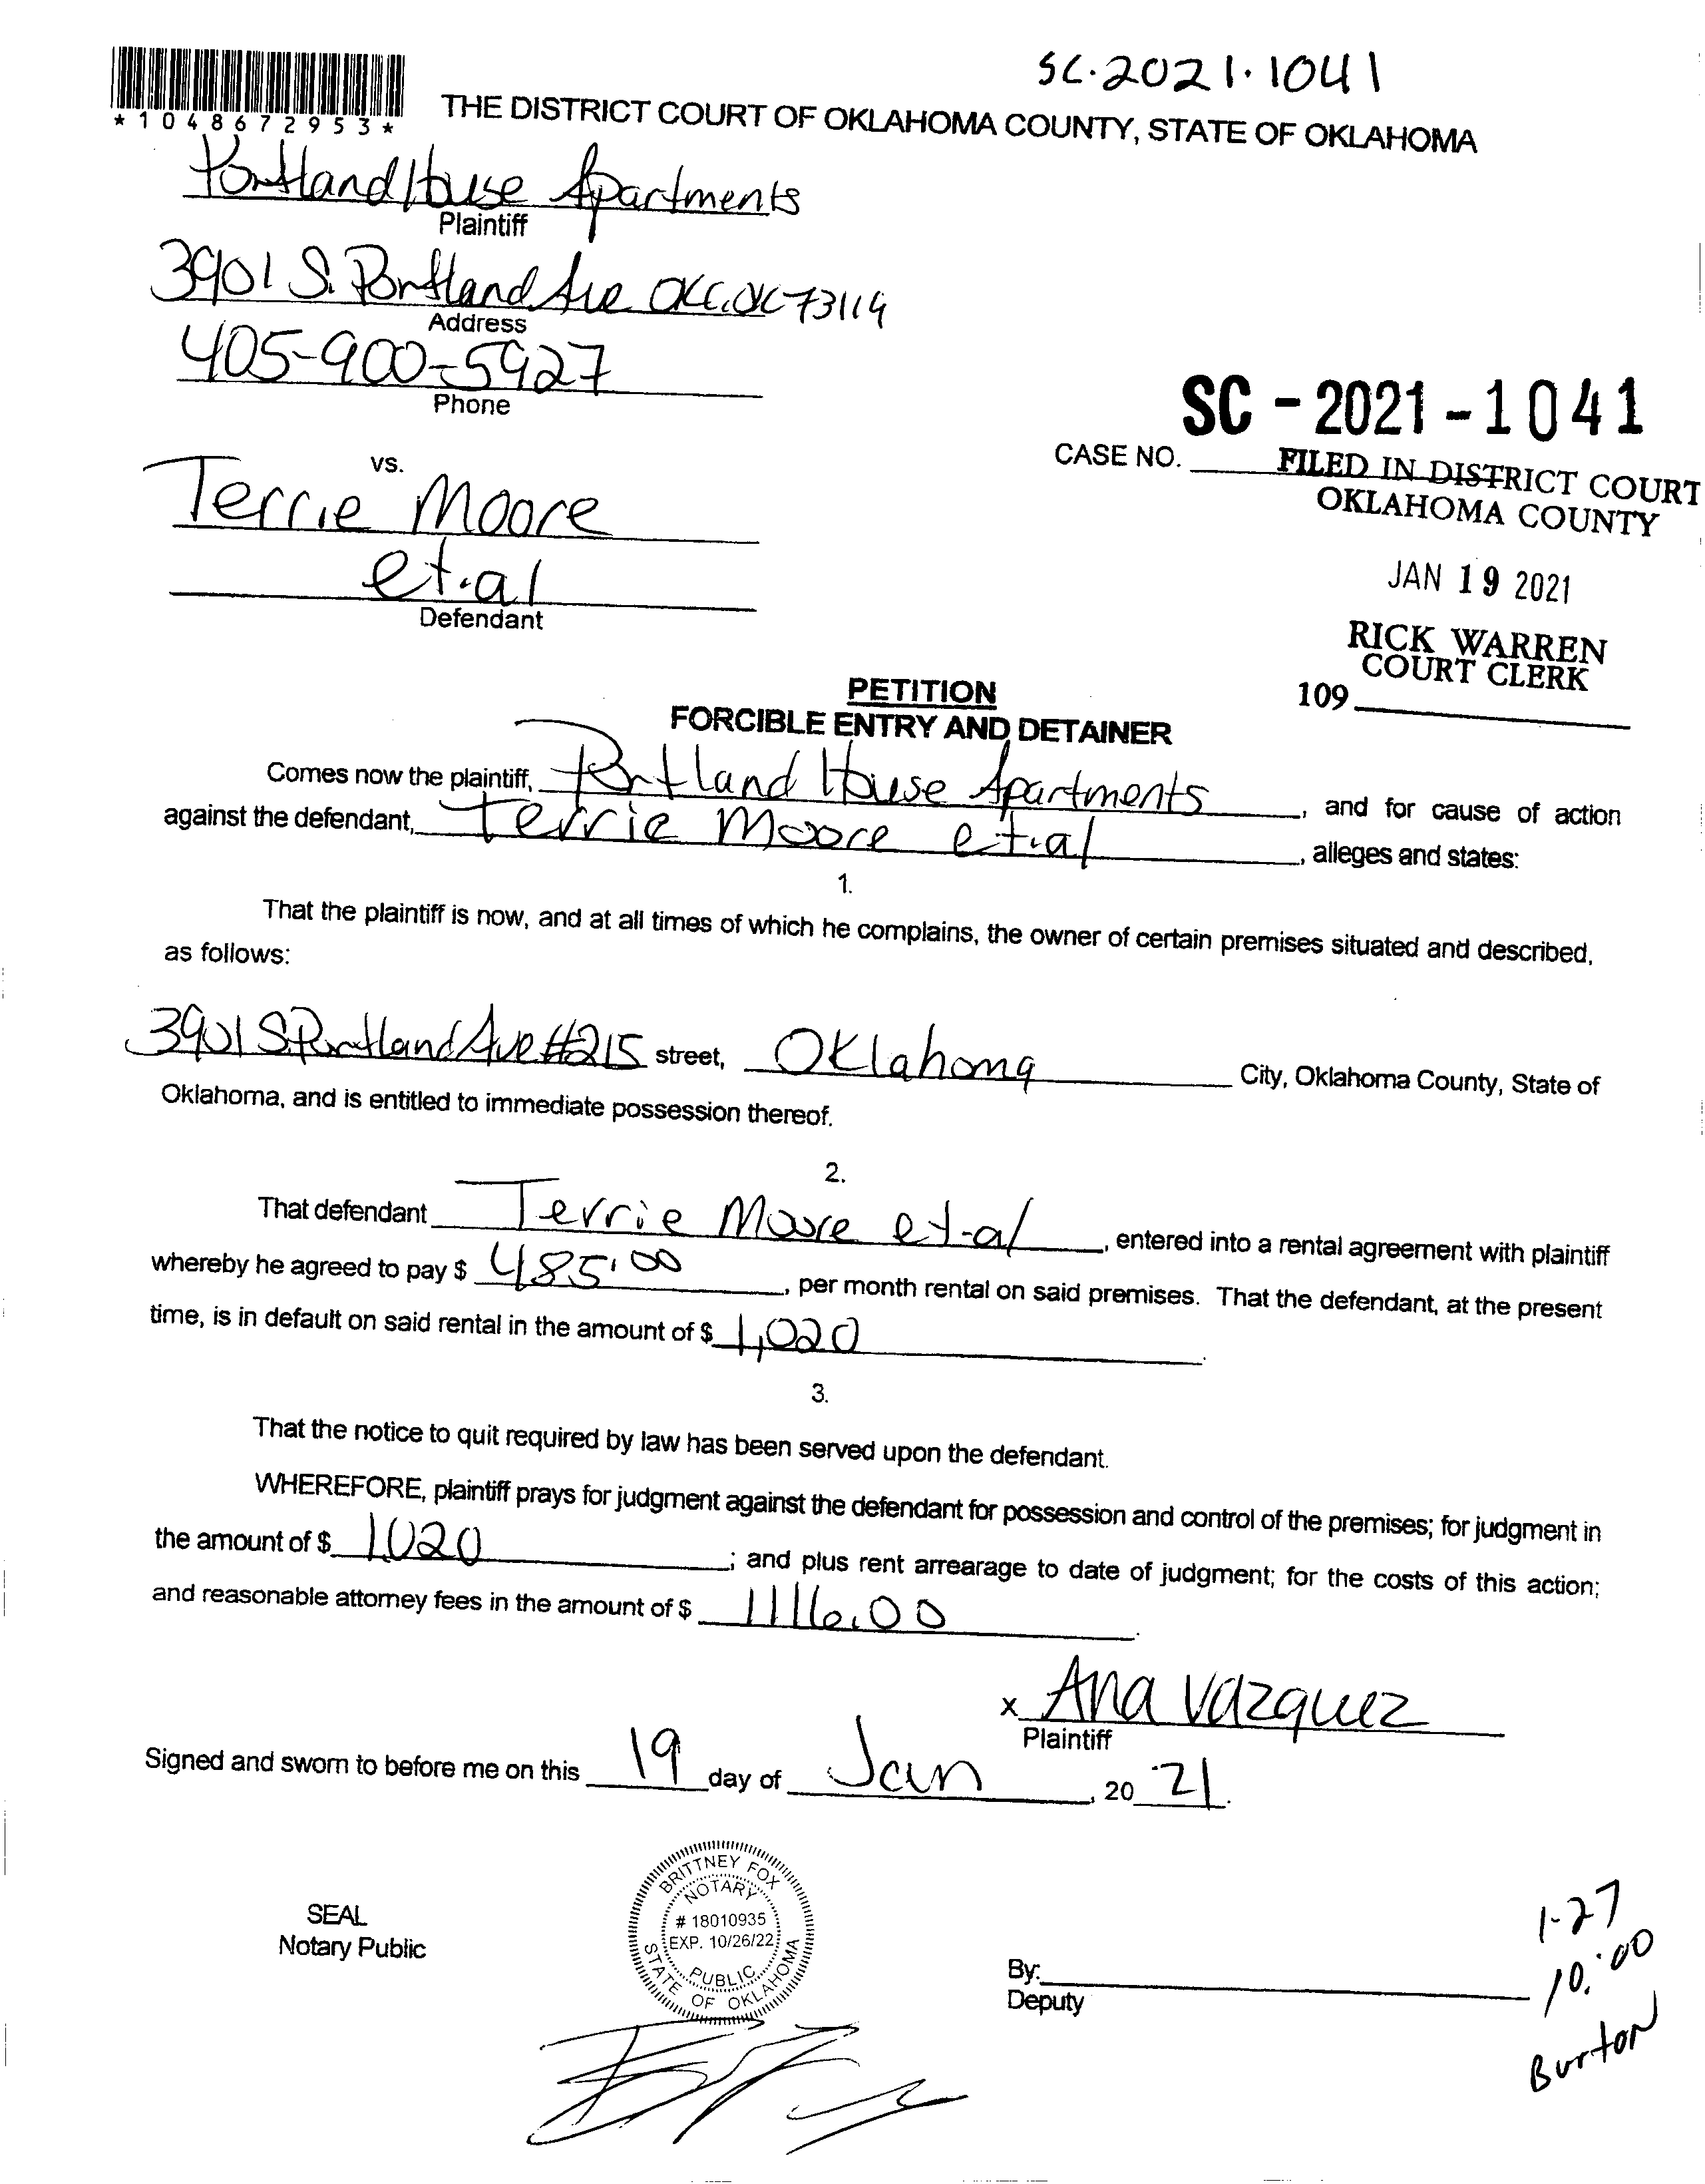 SC.2021.1041
*1048672953*
THE DISTRICT COURT OF OKLAHOMA COUNTY, STATE OF OKLAHOMA
Portland House Apartments
Plaintiff
3901 S. Portland Ave OKC.OK 73119
Address
405-900-5927
Phone
SC-2021-1041
CASE NO.
FILED IN DISTRICT COURT
OKLAHOMA COUNTY
vs.
Terrie Moore
et.al
Defendant
JAN 19 2021
RICK WARREN
COURT CLERK
109
PETITION
FORCIBLE ENTRY AND DETAINER
Comes now the plaintiff, Portland House Apartments, and for cause of action
against the defendant, Terrie Moore et.al, alleges and states:
1.
That the plaintiff is now, and at all times of which he complains, the owner of certain premises situated and described,
as follows:
3901 S. Portland Ave #215 street, Oklahoma City, Oklahoma County, State of
Oklahoma, and is entitled to immediate possession thereof.
2.
That defendant Terrie Moore et-al, entered into a rental agreement with plaintiff
whereby he agreed to pay $ 485.00, per month rental on said premises. That the defendant, at the present
time, is in default on said rental in the amount of $ 1,020.
3.
That the notice to quit required by law has been served upon the defendant.
WHEREFORE, plaintiff prays for judgment against the defendant for possession and control of the premises; for judgment in
the amount of $ 1,020; and plus rent arrearage to date of judgment; for the costs of this action;
and reasonable attorney fees in the amount of $ 1116.00.
x Ana Vazquez
Plaintiff
Signed and sworn to before me on this 19 day of Jan, 20 21.
SEAL
Notary Public
BRITTNEY FOX
NOTARY
# 18010935
EXP. 10/26/22
PUBLIC
STATE OF OKLAHOMA
By:
Deputy
1-27
10:00
Burton